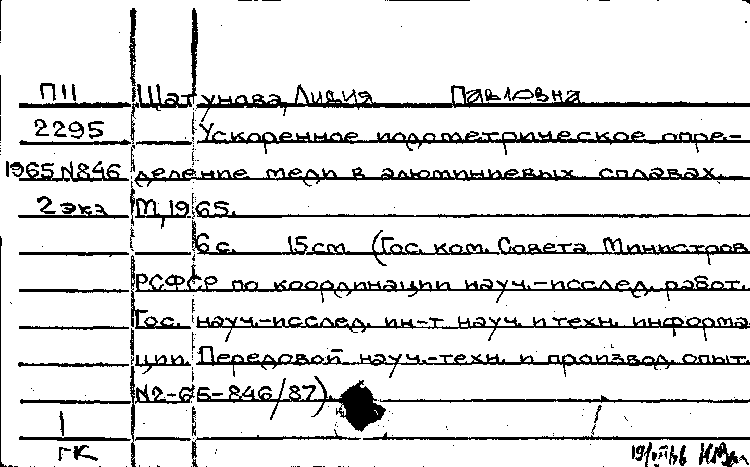 П11 Шатунова, Лидия Павловна
2295 Ускоренное иодометрическое опре-
1965 N846 деление меди в алюминиевых сплавах.
2 экз М, 1965.
6 с. 15 см (Гос. ком. Совета Министров
РСФСР по координации науч.-исслед. работ.
Гос. науч.-исслед. ин-т науч. и техн. информа
ции. Передовой науч.-техн. и производ. опыт.
N2-65-846/87).
ГК